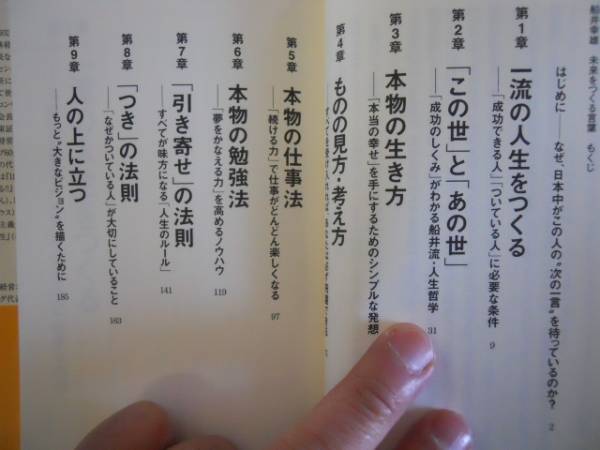 船井幸雄 未来をつくる言葉 もくじ
はじめに――なぜ、日本中がこの人の“次の一言”を待っているのか? 2
第1章 一流の人生をつくる
――「成功できる人」「ついている人」に必要な条件 9
第2章 「この世」と「あの世」
――「成功のしくみ」がわかる船井流・人生哲学 31
第3章 本物の生き方
――「本当の幸せ」を手にするためのシンプルな発想
第4章 ものの見方・考え方
第5章 本物の仕事法
――「続ける力」で仕事がどんどん楽しくなる 97
第6章 本物の勉強法
――「夢をかなえる力」を高めるノウハウ 119
第7章 「引き寄せ」の法則
――すべてが味方になる「人生のルール」 141
第8章 「つき」の法則
――「なぜかついている人」が大切にしていること 163
第9章 人の上に立つ
――もっと“大きなビジョン”を描くために 185